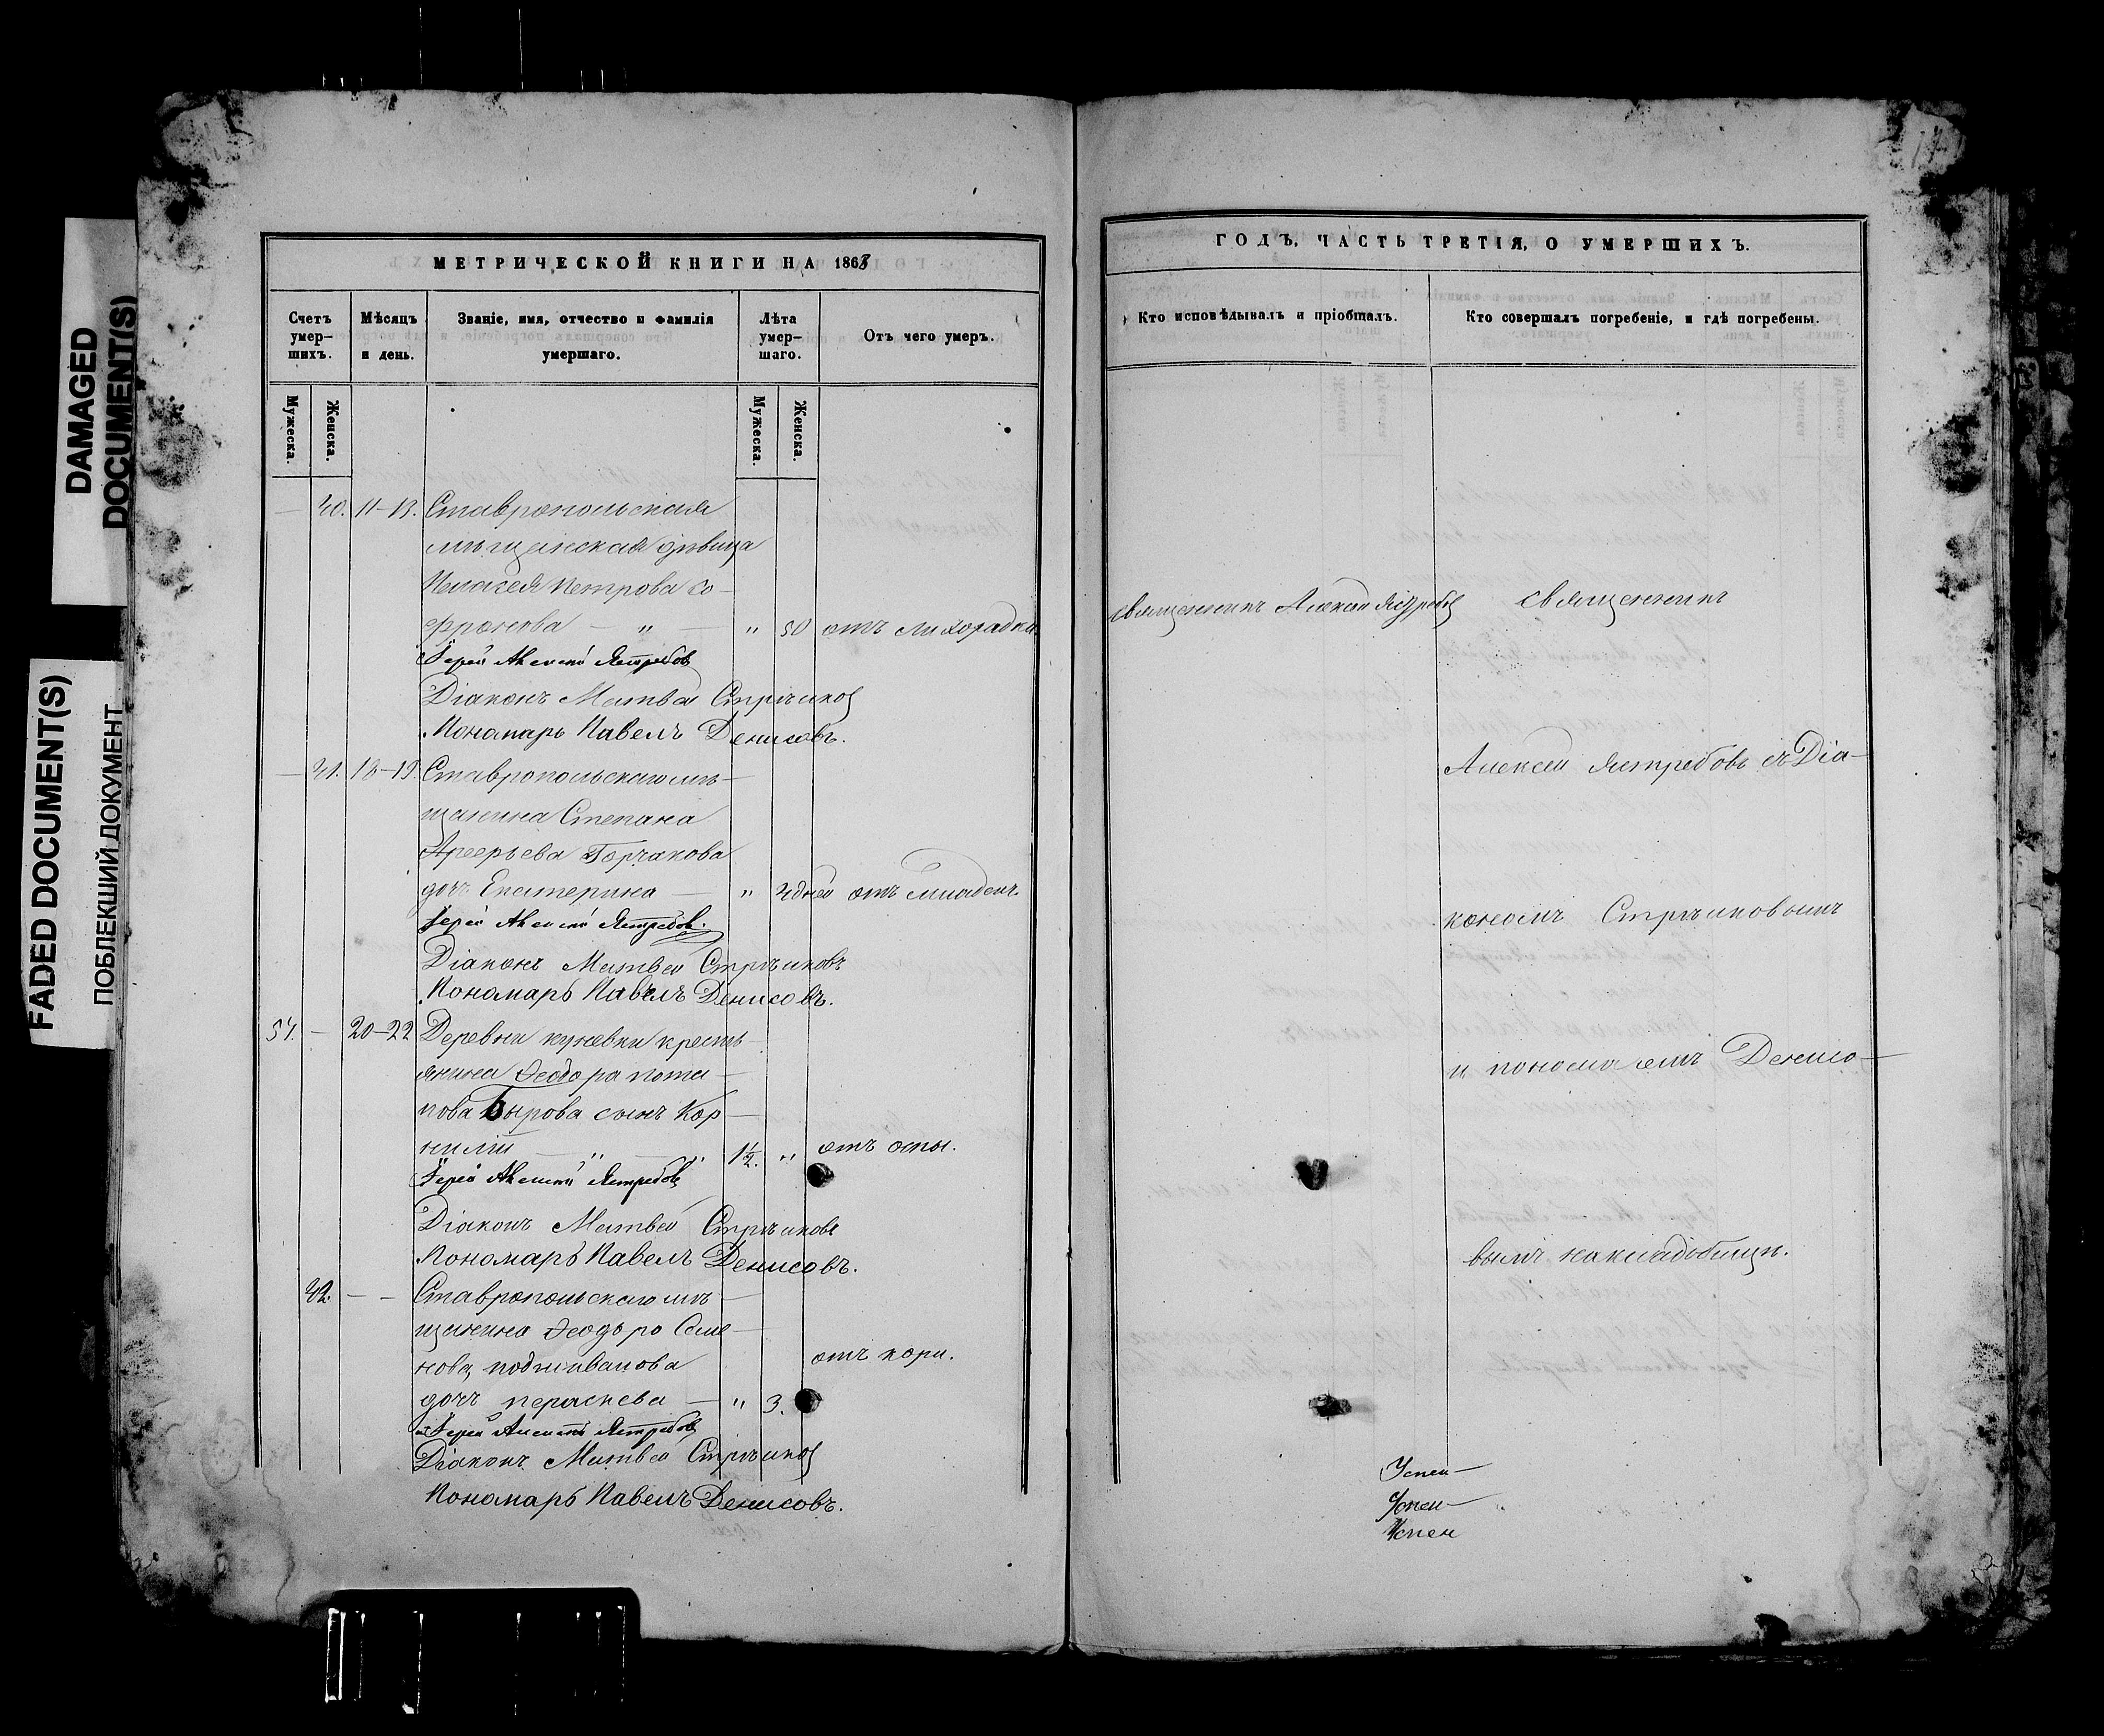 DAMAGED
DOCUMENT(S)
FADED DOCUMENT(S)
ПОБЛЕКШИЙ ДОКУМЕНТ
МЕТРИЧЕСКОЙ КНИГИ НА 1868
Счетъ умер-шихъ.
Мѣсяцъ и день.
Званіе, имя, отчество и фамилія умершаго.
Лѣта умер-шаго.
Отъ чего умеръ.
Мужеска.
Женска.
Мужеска.
Женска.
— 40. 11-13. Ставропольская
мѣщанская дѣвица
Пелагея Петрова Со-
фронова — " — " 50 отъ лихорадки
Іерей Алексій Ястребовъ
Діаконъ Матвей Стрѣлковъ
Пономарь Павелъ Денисовъ.
— 41. 18-19. Ставропольскаго мѣ-
щанина Степана
Арефьева Горчакова
дочь Екатерина — " 4 дней отъ младенч.
Іерей Алексій Ястребовъ.
Діаконъ Матвей Стрѣлковъ
Пономарь Павелъ Денисовъ.
54. — 20-22 Деревни кунѣвки кресть-
янина Ѳеодора пота-
пова Бырова сынъ Кор-
нилій — " — 1½. " отъ оспы.
Іерей Алексій Ястребовъ
Діаконъ Матвей Стрѣлковъ
Пономарь Павелъ Денисовъ.
42. — — Ставропольскаго мѣ-
щанина Ѳеодора Семе-
нова подживалова
дочь параскева — " 3. отъ кори.
Іерей Алексій Ястребовъ
Діаконъ Матвей Стрѣлковъ
Пономарь Павелъ Денисовъ.
ГОДЪ, ЧАСТЬ ТРЕТІЯ, О УМЕРШИХЪ.
Кто исповѣдывалъ и пріобщалъ.
Кто совершалъ погребеніе, и гдѣ погребены.
священникъ Алексей Ястребовъ
священникъ
Алексей Ястребовъ съ Діа-
кономъ Стрѣлковымъ
и пономаремъ Денисо-
вымъ на кладбищѣ.
Успен-
Успен-
Успен